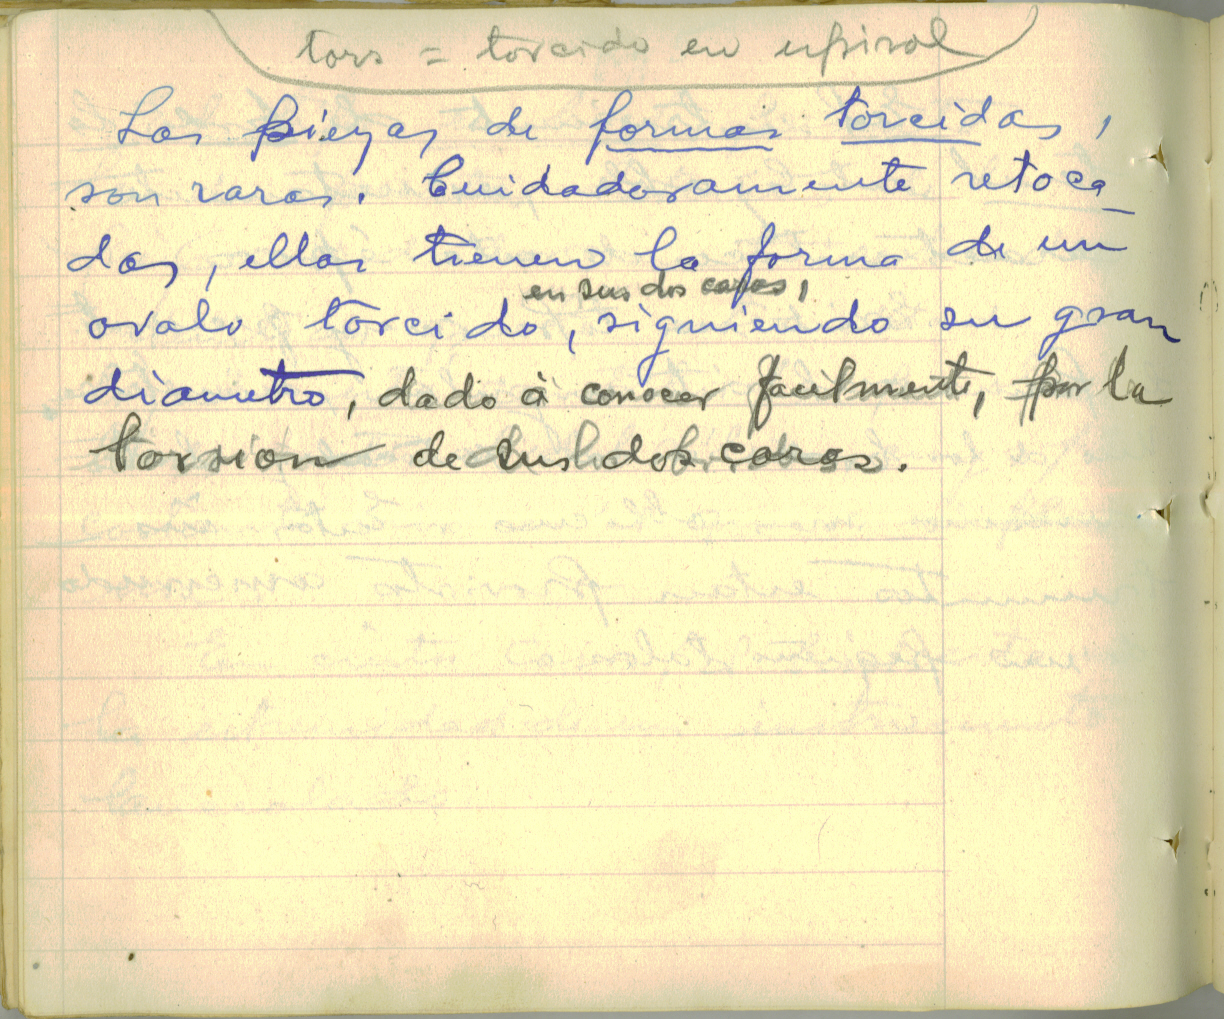 tors = torcido en espiral
Las piezas de formas torcidas,
son raras. Cuidadosamente retoca_
das, ellas tienen la forma de un
en sus dos caras,
ovalo torcido, siguiendo su gran
diametro, dado à conocer facilmente, por la
torsion de sus dos caras.